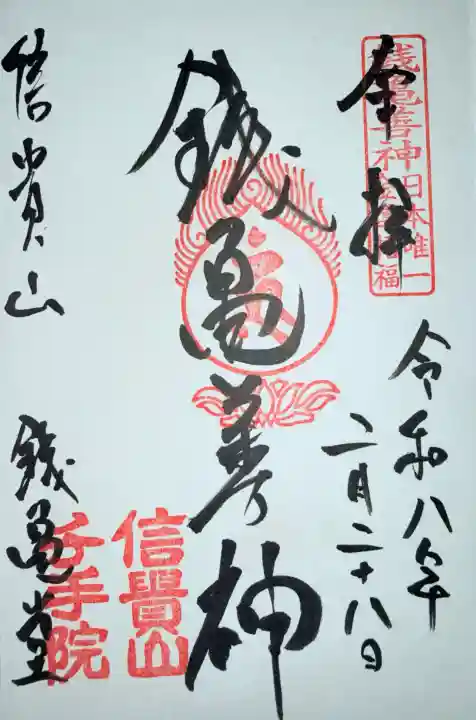 奉拝
銭亀善神日本唯一
令和八年
二月二十八日
銭亀善神
信貴山
銭亀堂
信貴山
千手院